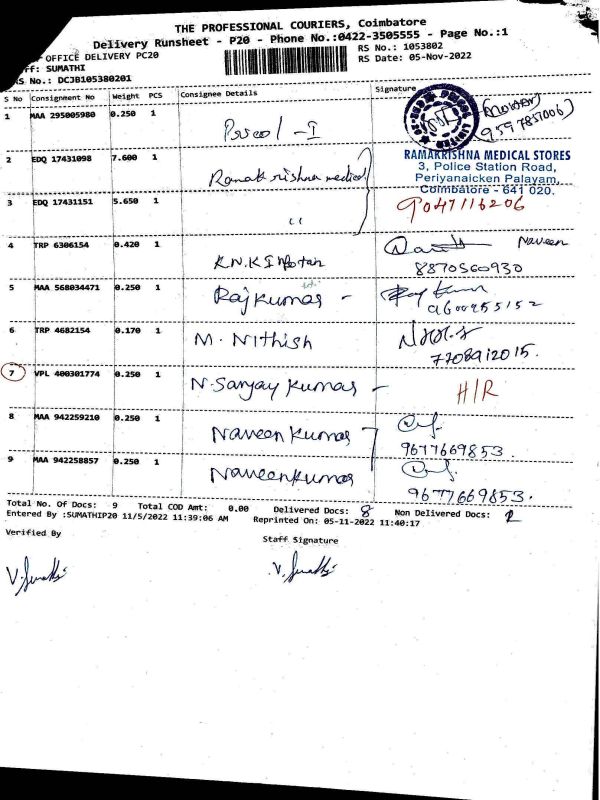 THE PROFESSIONAL COURIERS, Coimbatore
Delivery Runsheet - P20 - Phone No.:0422-3505555 - Page No.:1
OFFICE DELIVERY PC20
RS No.: 1053802
ff: SUMATHI
RS Date: 05-Nov-2022
RS No.: DCJB105380201
S No Consignment No Weight PCS Consignee Details Signature
1 MAA 295005980 0.250 1 Pricol - I 9597857006
2 EDQ 17431098 7.600 1 Ramakrishna medical
RAMAKRISHNA MEDICAL STORES
3, Police Station Road,
Periyanaicken Palayam,
Coimbatore - 641 020.
3 EDQ 17431151 5.650 1 " 9047116206
4 TRP 6306154 0.420 1 Naveen
8870560930
5 MAA 568034471 0.250 1 Rajkumar - Raj Kumar
9600955152
6 TRP 4682154 0.170 1 M. Nithish
7708912015.
7 VPL 400301774 0.250 1 N. Sanjay Kumar - H/R
8 MAA 942259210 0.250 1 Naveen Kumar
9677669853.
9 MAA 942258857 0.250 1 Naveenkumar
9677669853.
Total No. Of Docs: 9 Total COD Amt: 0.00 Delivered Docs: 8 Non Delivered Docs:
Entered By :SUMATHIP20 11/5/2022 11:39:06 AM Reprinted On: 05-11-2022 11:40:17
Verified By Staff Signature
V. Sumathi V. Sumathi